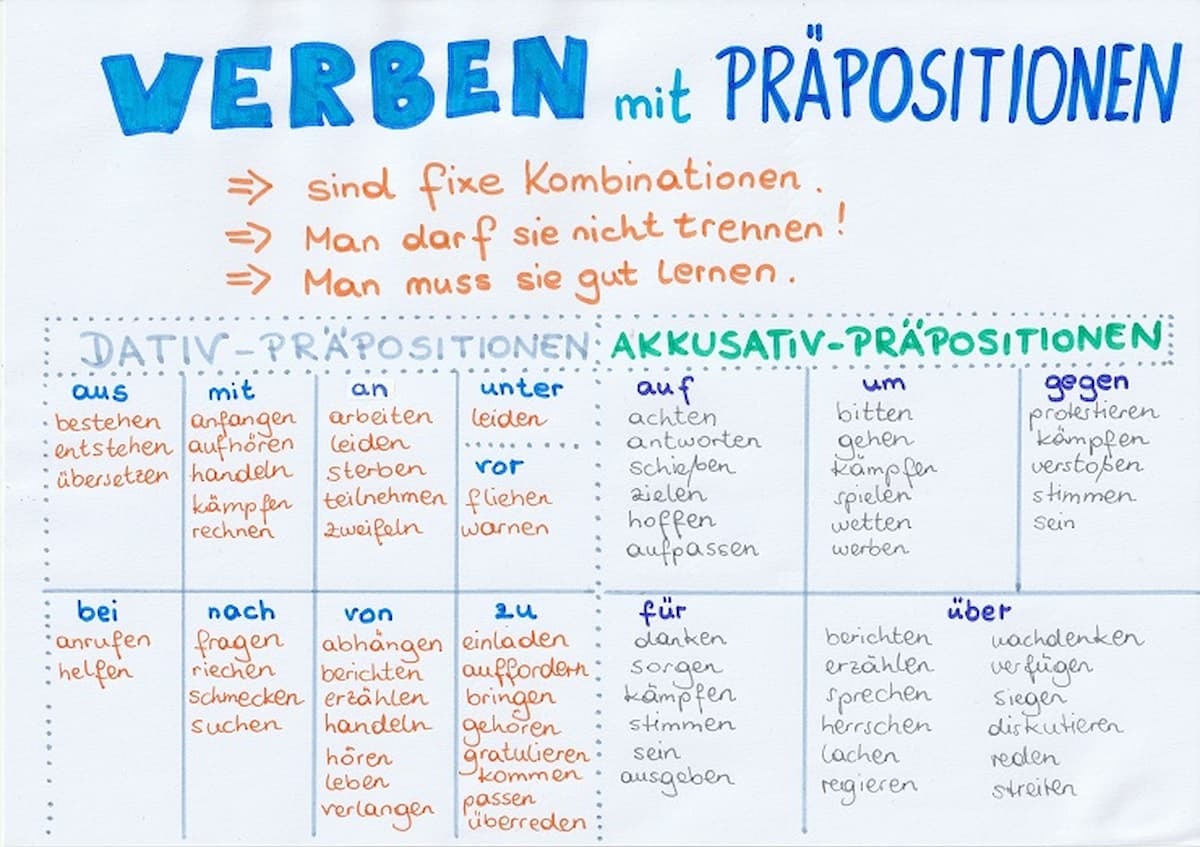 VERBEN mit PRÄPOSITIONEN
=> sind fixe Kombinationen.
=> Man darf sie nicht trennen!
=> Man muss sie gut lernen.
DATIV-PRÄPOSITIONEN
aus
bestehen
entstehen
übersetzen
mit
anfangen
aufhören
handeln
kämpfen
rechnen
an
arbeiten
leiden
sterben
teilnehmen
zweifeln
unter
leiden
vor
fliehen
warnen
bei
anrufen
helfen
nach
fragen
riechen
schmecken
suchen
von
abhängen
berichten
erzählen
handeln
hören
leben
verlangen
zu
einladen
auffordern
bringen
gehören
gratulieren
kommen
passen
überreden
AKKUSATIV-PRÄPOSITIONEN
auf
achten
antworten
schießen
zielen
hoffen
aufpassen
um
bitten
gehen
kämpfen
spielen
wetten
werben
gegen
protestieren
kämpfen
verstoßen
stimmen
sein
für
danken
sorgen
kämpfen
stimmen
sein
ausgeben
über
berichten
erzählen
sprechen
herrschen
lachen
regieren
nachdenken
verfügen
siegen
diskutieren
reden
streiten